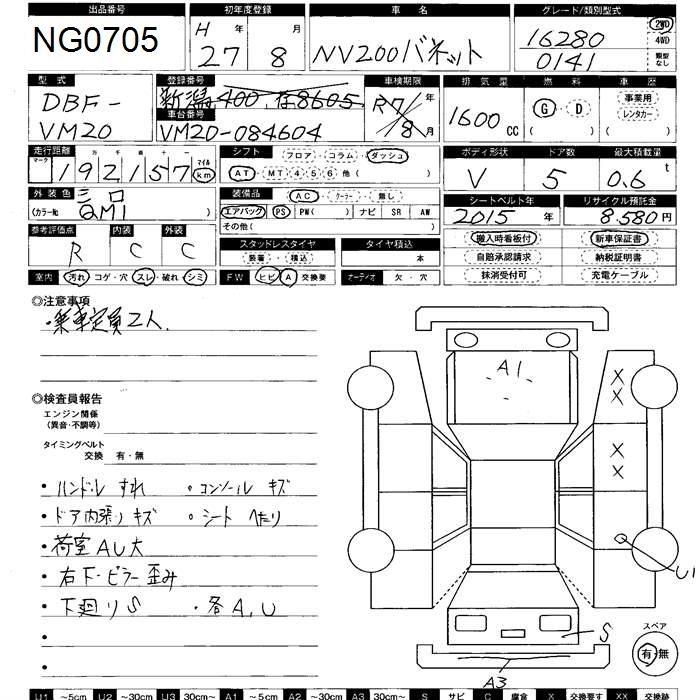 出品番号 初年度登録 車名 グレード/類別型式
NG0705 H 27年 8月 NV200バネット 16280 0141 2WD 4WD 類型なし
型式 登録番号 車検期限 排気量 燃料 車歴
DBF-VM20 新潟 400 R7年 8月 1600CC G・D ( ) 事業用 レンタカー ( )
車台番号
VM20-084604
走行距離 シフト ボディ形状 ドア数 最大積載量
マーク 十 万 千 百 十 一 マイル
192157 km フロア・コラム・ダッシュ V 5 0.6t
AT・MT 4 5 6 他( )
外装色 シロ 装備品 AC・クーラー・無し シートベルト年 リサイクル預託金
(カラーNo QM1 ) エアバック PS PW( ) ナビ SR AW 2015年 8.580円
その他( )
参考評価点 内装 外装 スタッドレスタイヤ タイヤ積込 搬入時看板付 新車保証書
R C C 装着・積込 本 自賠承認請求 納税証明書
室内 汚れ・コゲ・穴・スレ・破れ・シミ FW ヒビ・A・交換要 オーディオ 欠・穴 抹消受付可 充電ケーブル
◎注意事項
・乗車定員2人.
◎検査員報告
エンジン関係
(異音・不調等)
タイミングベルト
交換 有・無
・ハンドル すれ ・コンソール キズ
・ドア内張りキズ ・シート へたり
・荷室AU大
・右下・ピラー歪み
・下廻りS ・各A,U
A1
X
X
X
X
U1
S
A3
スペア
有・無
U1 ～5cm U2 ～30cm U3 30cm～ A1 ～5cm A2 ～30cm A3 30cm～ S サビ C 腐食 X 交換要す XX 交換跡